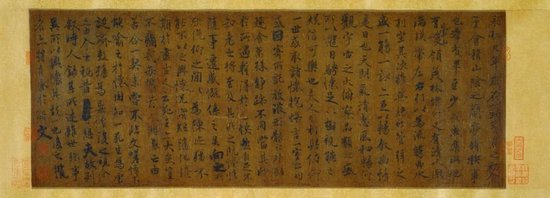 永和九年歲在癸丑暮春之初會
于會稽山陰之蘭亭脩禊事
也羣賢畢至少長咸集此地
有崇山峻領茂林脩竹又有清流激
湍暎帶左右引以為流觴曲水
列坐其次雖無絲竹管弦之
盛一觴一詠亦足以暢敘幽情
是日也天朗氣清惠風和暢仰
觀宇宙之大俯察品類之盛
所以遊目騁懷足以極視聽之
娛信可樂也夫人之相與俯仰
一世或取諸懷抱悟言一室之內
或因寄所託放浪形骸之外雖
趣舍萬殊靜躁不同當其欣
於所遇暫得於己快然自足不
知老之將至及其所之既惓情
隨事遷感慨係之矣向之所
欣俛仰之間以為陳迹猶不
能不以之興懷況脩短隨化終
期於盡古人云死生亦大矣豈
不痛哉每攬昔人興感之由
若合一契未嘗不臨文嗟悼不
能喻之於懷固知一死生為虛
誕齊彭殤為妄作後之視今
亦由今之視昔悲夫故列
敘時人錄其所述雖世殊事
異所以興懷其致一也後之攬
者亦將有感於斯文